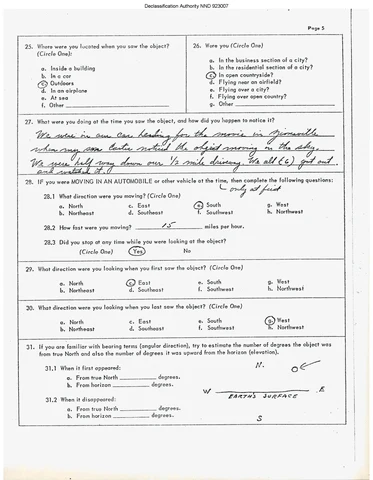 Declassification Authority NND 923007
Page 5
25. Where were you located when you saw the object?
(Circle One):
a. Inside a building
b. In a car
c. Outdoors
d. In an airplane
e. At sea
f. Other
26. Were you (Circle One)
a. In the business section of a city?
b. In the residential section of a city?
c. In open countryside?
d. Flying near an airfield?
e. Flying over a city?
f. Flying over open country?
g. Other
27. What were you doing at the time you saw the object, and how did you happen to notice it?
We were in our car heading for the movie in
when my sister noticed the object moving in the sky.
We were half way down our 1/2 mile driveway. We all (6) got out
and watched it.
28. IF you were MOVING IN AN AUTOMOBILE or other vehicle at the time, then complete the following questions:
only at first
28.1 What direction were you moving? (Circle One)
a. North c. East e. South g. West
b. Northeast d. Southeast f. Southwest h. Northwest
28.2 How fast were you moving? 15 miles per hour.
28.3 Did you stop at any time while you were looking at the object?
(Circle One) Yes No
29. What direction were you looking when you first saw the object? (Circle One)
a. North c. East e. South g. West
b. Northeast d. Southeast f. Southwest h. Northwest
30. What direction were you looking when you last saw the object? (Circle One)
a. North c. East e. South g. West
b. Northeast d. Southeast f. Southwest h. Northwest
31. If you are familiar with bearing terms (angular direction), try to estimate the number of degrees the object was
from true North and also the number of degrees it was upward from the horizon (elevation).
31.1 When it first appeared:
a. From true North degrees.
b. From horizon degrees.
31.2 When it disappeared:
a. From true North degrees.
b. From horizon degrees.
N.
W E
EARTH'S SURFACE
S